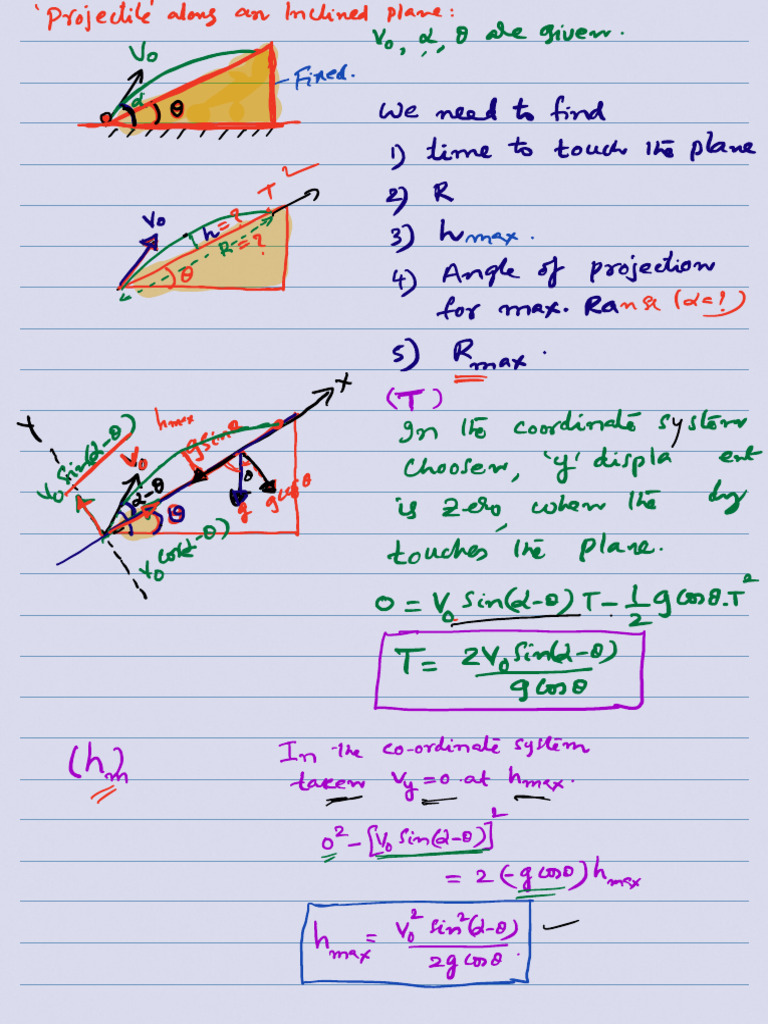 'Projectile' along an Inclined plane:
V₀, α, θ are given.
V₀
α
θ
Fixed.
We need to find
1) time to touch the plane
2) R
3) hmax.
4) Angle of projection
for max. Range (α=?)
5) Rmax.
T
V₀
h=?
R=?
θ
(T)
In the coordinate system
choosen, 'y' displa ent
is zero, when the
touches the plane.
0 = V₀ Sin(α-θ) T - 1/2 g cosθ.T²
T = 2V₀ Sin(α-θ) / g cosθ
X
Y
hmax
V₀ Sin(α-θ)
V₀
g sinθ
α-θ
θ
θ
g
g cosθ
V₀ cos(α-θ)
(hm)
In the co-ordinate system
taken Vy=0 at hmax.
0² - [V₀ Sin(α-θ)]²
= 2 (-g cosθ) hmax
hmax = V₀² sin²(α-θ) / 2g cosθ.